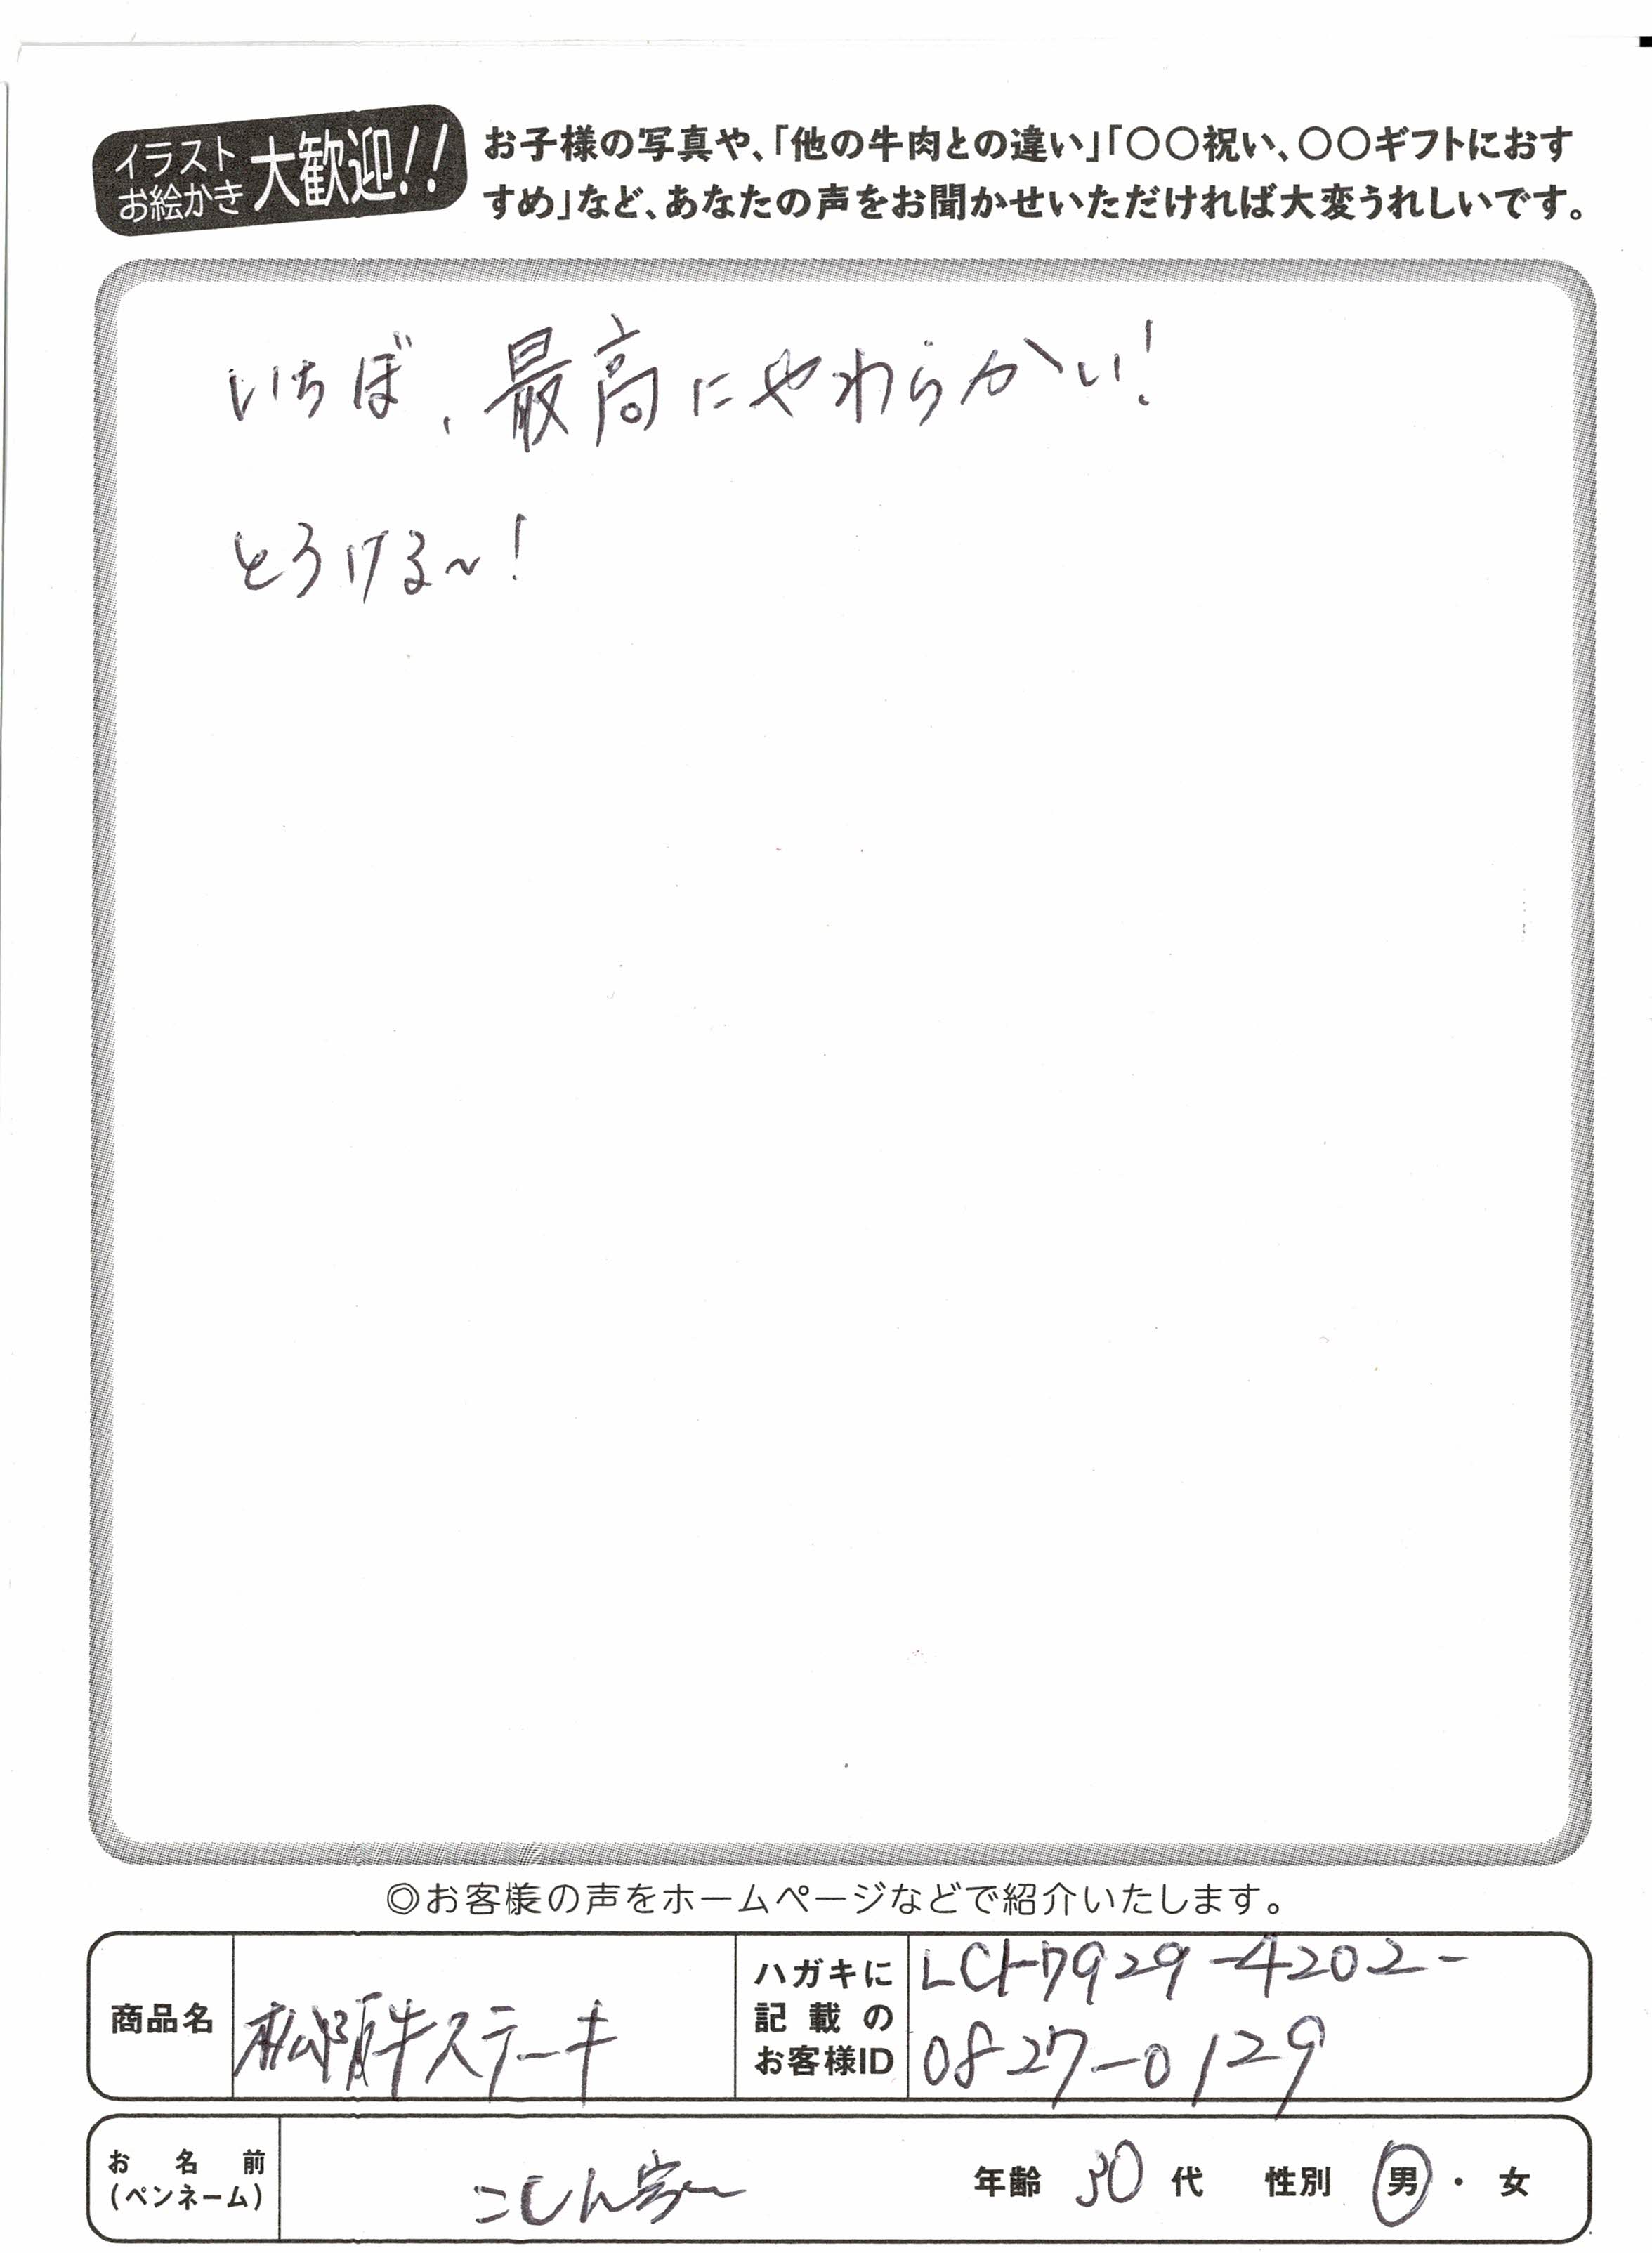 イラスト
お絵かき
大歓迎!!
お子様の写真や、「他の牛肉との違い」「〇〇祝い、〇〇ギフトにおす
すめ」など、あなたの声をお聞かせいただければ大変うれしいです。
いちぼ、最高にやわらかい!
とろける~!
◎お客様の声をホームページなどで紹介いたします。
商品名
松阪牛ステーキ
ハガキに
記載の
お客様ID
LCH7929-4202-
0827-0129
お名前
(ペンネーム)
年齢 30 代 性別 男・女